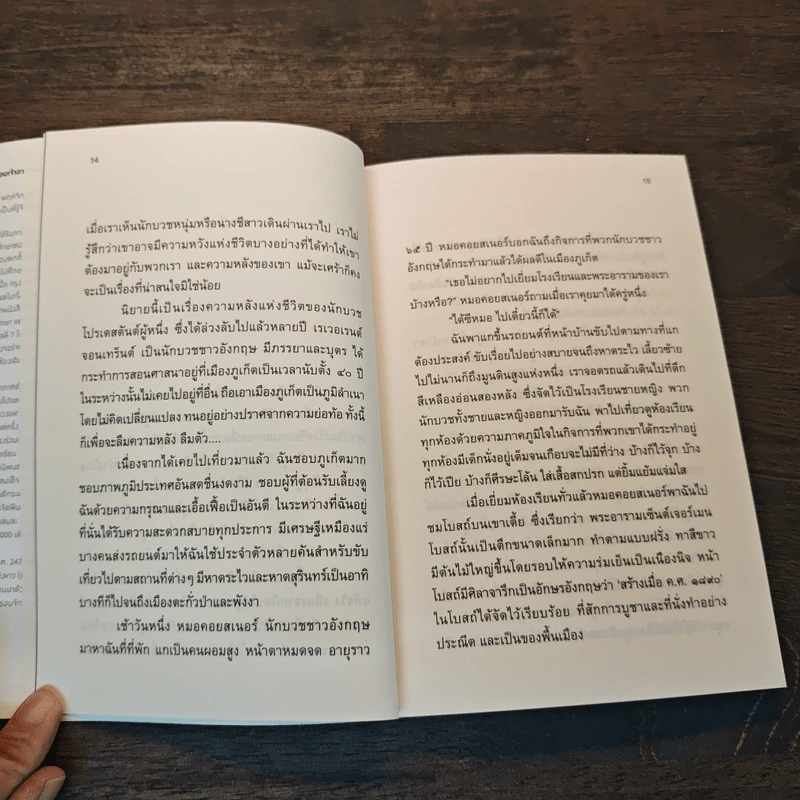 14
เมื่อเราเห็นนักบวชหนุ่มหรือนางชีสาวเดินผ่านเราไป เราไม่
รู้สึกว่าเขาอาจมีความหวังแห่งชีวิตบางอย่างที่ได้ทำให้เขา
ต้องมาอยู่กับพวกเรา และความหลังของเขา แม้จะเศร้าก็คง
จะเป็นเรื่องที่น่าสนใจมิใช่น้อย
นิยายนี้เป็นเรื่องความหลังแห่งชีวิตของนักบวช
โปรเตสตันต์ผู้หนึ่ง ซึ่งได้ล่วงลับไปแล้วหลายปี เรเวอเรนด์
จอนเทร็นต์ เป็นนักบวชชาวอังกฤษ มีภรรยาและบุตร ได้
กระทำการสอนศาสนาอยู่ที่เมืองภูเก็ตเป็นเวลานับตั้ง ๔๐ ปี
ในระหว่างนั้นไม่เคยไปอยู่ที่อื่น ถือเอาเมืองภูเก็ตเป็นภูมิลำเนา
โดยไม่คิดเปลี่ยนแปลง ทนอยู่อย่างปราศจากความย่อท้อ ทั้งนี้
ก็เพื่อจะลืมความหลัง ลืมตัว....
เนื่องจากได้เคยไปเที่ยวมาแล้ว ฉันชอบภูเก็ตมาก
ชอบภาพภูมิประเทศอันสดชื่นงดงาม ชอบผู้ที่ต้อนรับเลี้ยงดู
ฉันด้วยความกรุณาและเอื้อเฟื้อเป็นอันดี ในระหว่างที่ฉันอยู่
ที่นั่นได้รับความสะดวกสบายทุกประการ มีเศรษฐีเหมืองแร่
บางคนส่งรถยนต์มาให้ฉันใช้ประจำตัวหลายคันสำหรับขับ
เที่ยวไปตามสถานที่ต่างๆ มีหาดระไวและหาดสุรินทร์เป็นอาทิ
บางทีก็ไปจนถึงเมืองตะกั่วป่าและพังงา
เช้าวันหนึ่ง หมอคอยสเนอร์ นักบวชชาวอังกฤษ
มาหาฉันที่ที่พัก แกเป็นคนผอมสูง หน้าตาหมดจด อายุราว
15
๖๕ ปี หมอคอยสเนอร์บอกฉันถึงกิจการที่พวกนักบวชชาว
อังกฤษได้กระทำมาแล้วได้ผลดีในเมืองภูเก็ต
“เธอไม่อยากไปเยี่ยมโรงเรียนและพระอารามของเรา
บ้างหรือ?” หมอคอยสเนอร์ถามเมื่อเราคุยมาได้ครู่หนึ่ง
“ได้ซีหมอ ไปเดี๋ยวนี้ก็ได้”
ฉันพาแกขึ้นรถยนต์ที่หน้าบ้านขับไปตามทางที่แก
ต้องประสงค์ ขับเรื่อยไปอย่างสบายจนถึงหาดระไว เลี้ยวซ้าย
ไปไม่นานก็ถึงมูนดินสูงแห่งหนึ่ง เราจอดรถแล้วเดินไปที่ตึก
สีเหลืองอ่อนสองหลัง ซึ่งจัดไว้เป็นโรงเรียนชายหญิง พวก
นักบวชทั้งชายและหญิงออกมารับฉัน พาไปเที่ยวดูห้องเรียน
ทุกห้องด้วยความภาคภูมิใจในกิจการที่พวกเขาได้กระทำอยู่
ทุกห้องมีเด็กนั่งอยู่เต็มจนเกือบจะไม่มีที่ว่าง บ้างก็ไว้จุก บ้าง
ก็ไว้เปีย บ้างก็ศีรษะโล้น ใส่เสื้อสกปรก แต่ยิ้มแย้มแจ่มใส
เมื่อเยี่ยมห้องเรียนทั่วแล้วหมอคอยสเนอร์พาฉันไป
ชมโบสถ์บนเขาเตี้ย ซึ่งเรียกว่า พระอารามเซ็นต์เจอร์เมน
โบสถ์นั้นเป็นตึกขนาดเล็กมาก ทำตามแบบฝรั่ง ทาสีขาว
มีต้นไม้ใหญ่ขึ้นโดยรอบให้ความร่มเย็นเป็นเนืองนิจ หน้า
โบสถ์มีศิลาจารึกเป็นอักษรอังกฤษว่า ‘สร้างเมื่อ ค.ศ. ๑๘๙๐’
ในโบสถ์ได้จัดไว้เรียบร้อย ที่สักการบูชาและที่นั่งทำอย่าง
ประณีต และเป็นของพื้นเมือง